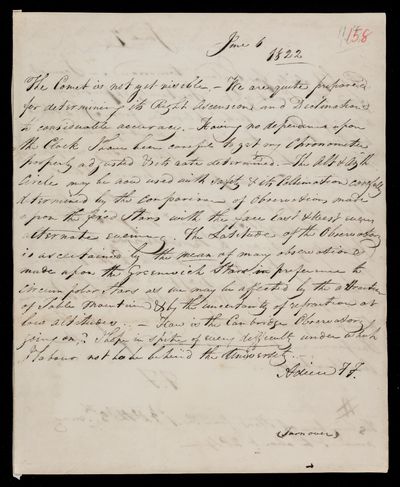 158
June 6
1822
The Comet is not yet visible – We are quite prepared
for determining its Right Ascension and Declination
considerable accuracy. – Having no dependance upon
the Clock I have been careful to get my Chronometer
properly adjusted & its rate determined. – The Alt & Azth
Circle may be now used with safety & its Collimation carefully
determined by the Comparison of Observations made
upon the fixed Stars with the face East & West every
alternate evening. The Latitude of the Observatory
is ascertained by the mean of many observations
made upon the Greenwich Stars in preference to
circumpolar Stars as we may be affected by the attraction
of Table Mountain & by the uncertainty of refraction at
low altitudes. – How is the Cambridge Observatory
going on? I hope in spite of every difficulty under which
I labour not to be behind the University.
Adieu F F.
(turn over)